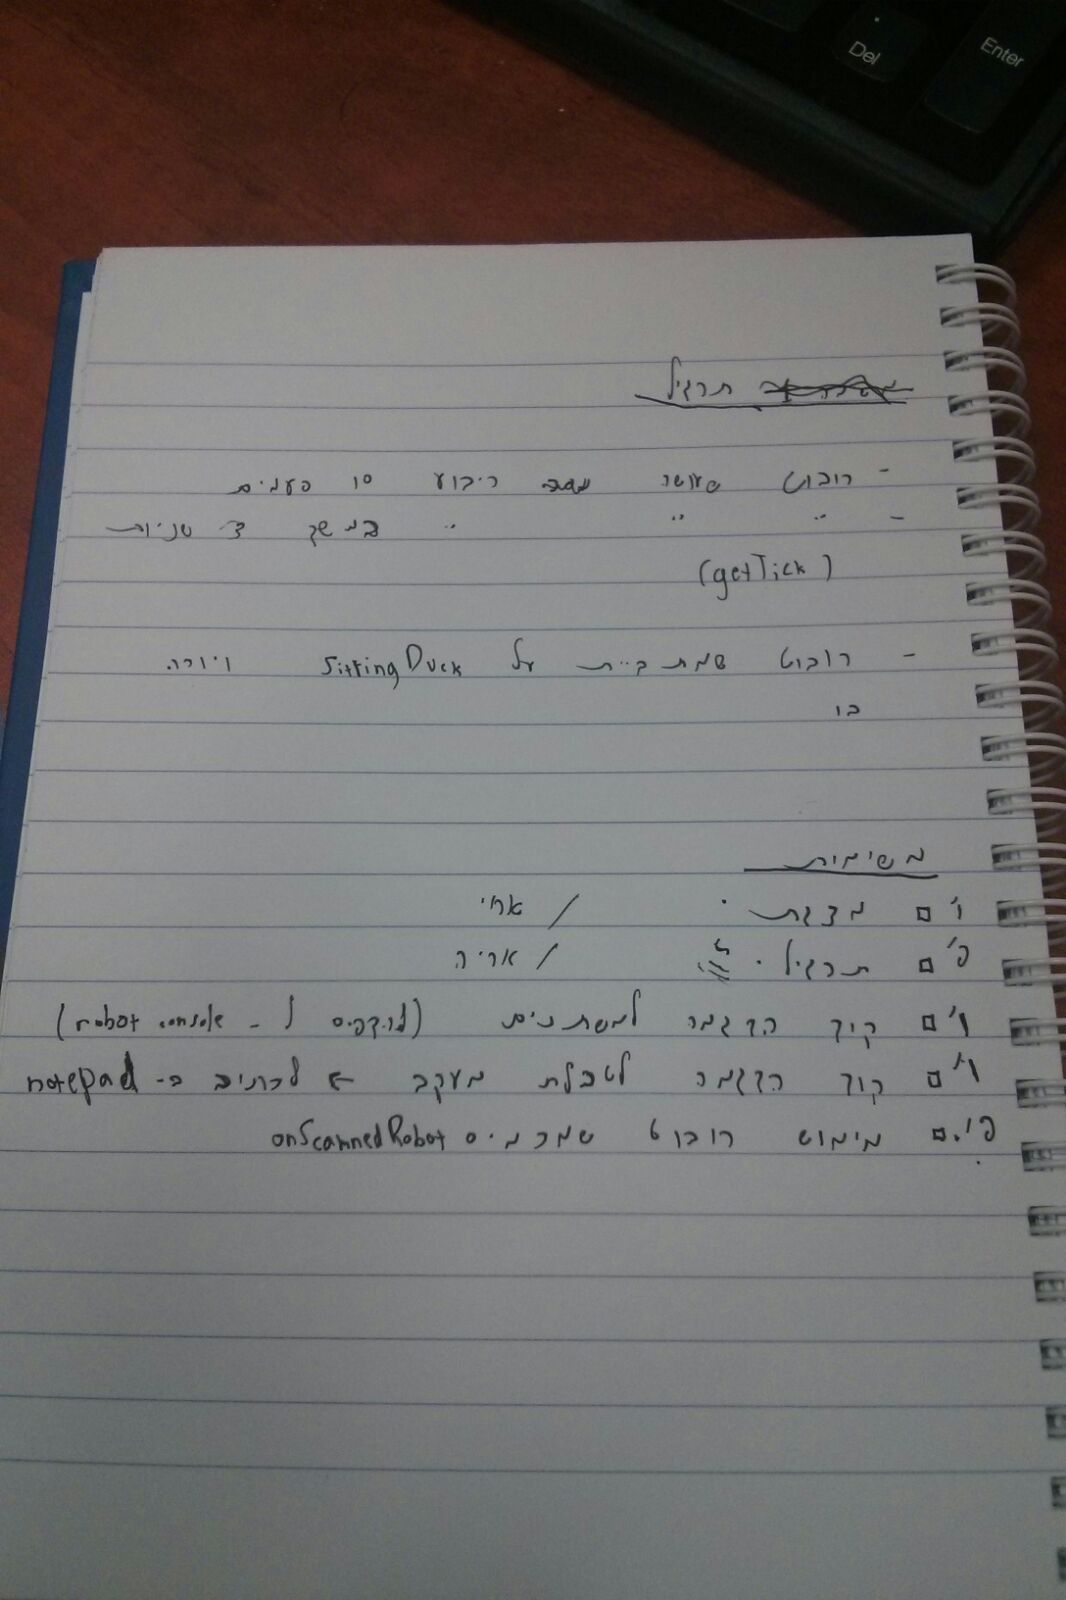 Del
Enter
תרגיל
- רובוט שעושה ריבוע 10 פעמים
- " " " במשך שניות
(getTick)
- רובוט שמתביית על SittingDuck ויורה
בו
משימות
מצגת / אחי
תרגיל. / אריה
קוד הדגמה למשתנים (robot console - ל
קוד הדגמה לטבלת מעקב ← לכתוב ב- notepad
מימוש רובוט שמרמיס onScannedRobot